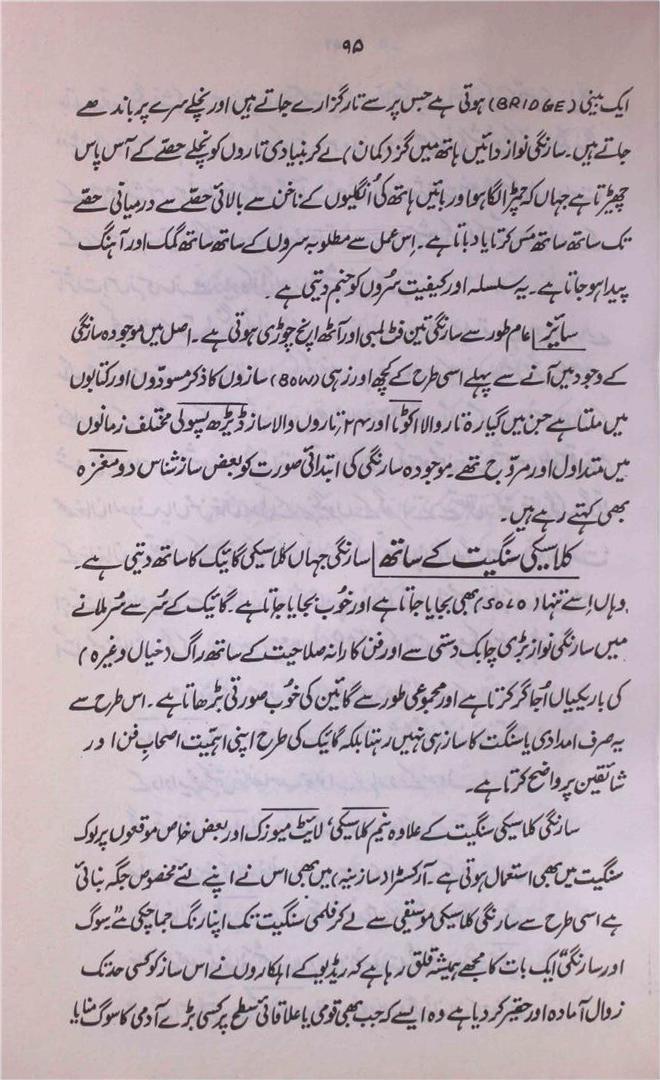 ۹۵
ایک بینی (BRIDGE) ہوتی ہے جس پر سے تار گزارے جاتے ہیں اور نچلے سرے پر باندھے
جاتے ہیں۔ سارنگی نواز دائیں ہاتھ میں گز (کمان) لے کر بنیادی تاروں کو نچلے حصّے کے آس پاس
چھیڑتا ہے جہاں کہ چمڑا لگا ہو اور بائیں ہاتھ کی اُنگلیوں کے ناخن سے بالائی حصّے سے درمیانی حصّے
تک ساتھ ساتھ مَس کرتا یا دباتا ہے۔ اِس عمل سے مطلوبہ سروں کے ساتھ ساتھ گمک اور آہنگ
پیدا ہو جاتا ہے۔ یہ سلسلہ اور کیفیت سُروں کو جنم دیتی ہے۔
سائز عام طور سے سارنگی تین فٹ لمبی اور آٹھ اِنچ چوڑی ہوتی ہے۔ اصل میں موجودہ سارنگی
کے وجود میں آنے سے پہلے اسی طرح کے کچھ اور زہی (BOW) سازوں کا ذکر مسودّوں اور کتابوں
میں ملتا ہے جن میں گیارہ تار والا اکوٹا اور ۲۴ تاروں والا ساز ڈیڑھ پسولی مختلف زمانوں
میں متداول اور مروّج تھے۔ موجودہ سارنگی کی ابتدائی صورت کو بعض ساز شناس دو مغزہ
بھی کہتے رہے ہیں۔
کلاسیکی سنگیت کے ساتھ سارنگی جہاں کلاسیکی گائیک کا ساتھ دیتی ہے۔
وہاں اِسے تنہا (SOLO) بھی بجایا جاتا ہے اور خُوب بجایا جاتا ہے۔ گائیک کے سُر سے سُر ملانے
میں سارنگی نواز بڑی چابک دستی سے اور فن کارانہ صلاحیت کے ساتھ راگ (خیال وغیرہ)
کی باریکیاں اُجاگر کرتا ہے اور مجموعی طور سے گائین کی خُوب صورتی بڑھاتا ہے۔ اس طرح سے
یہ صرف امدادی یا سنگت کا ساز ہی نہیں رہتا بلکہ گائیک کی طرح اپنی اہمیّت اصحابِ فن اور
شائقین پر واضح کرتا ہے۔
سارنگی کلاسیکی سنگیت کے علاوہ نیم کلاسیکی، لائیٹ میوزک اور بعض خاص موقعوں پر لوک
سنگیت میں بھی استعمال ہوتی ہے۔ آرکسٹرا (سازینہ) میں بھی اس نے اپنے لئے مخصوص جگہ بنائی
ہے اسی طرح سے سارنگی کلاسیکی موسیقی سے لے کر فلمی سنگیت تک اپنا رنگ جما چکی ہے۔ "سوگ
اور سارنگی" ایک بات کا مجھے ہمیشہ قلق رہا ہے کہ ریڈیو کے اہلکاروں نے اس ساز کو کسی حد تک
زوال آمادہ اور حقیر کر دیا ہے وہ ایسے کہ جب بھی قومی یا علاقائی سطح پر کسی بڑے آدمی کا سوگ منایا